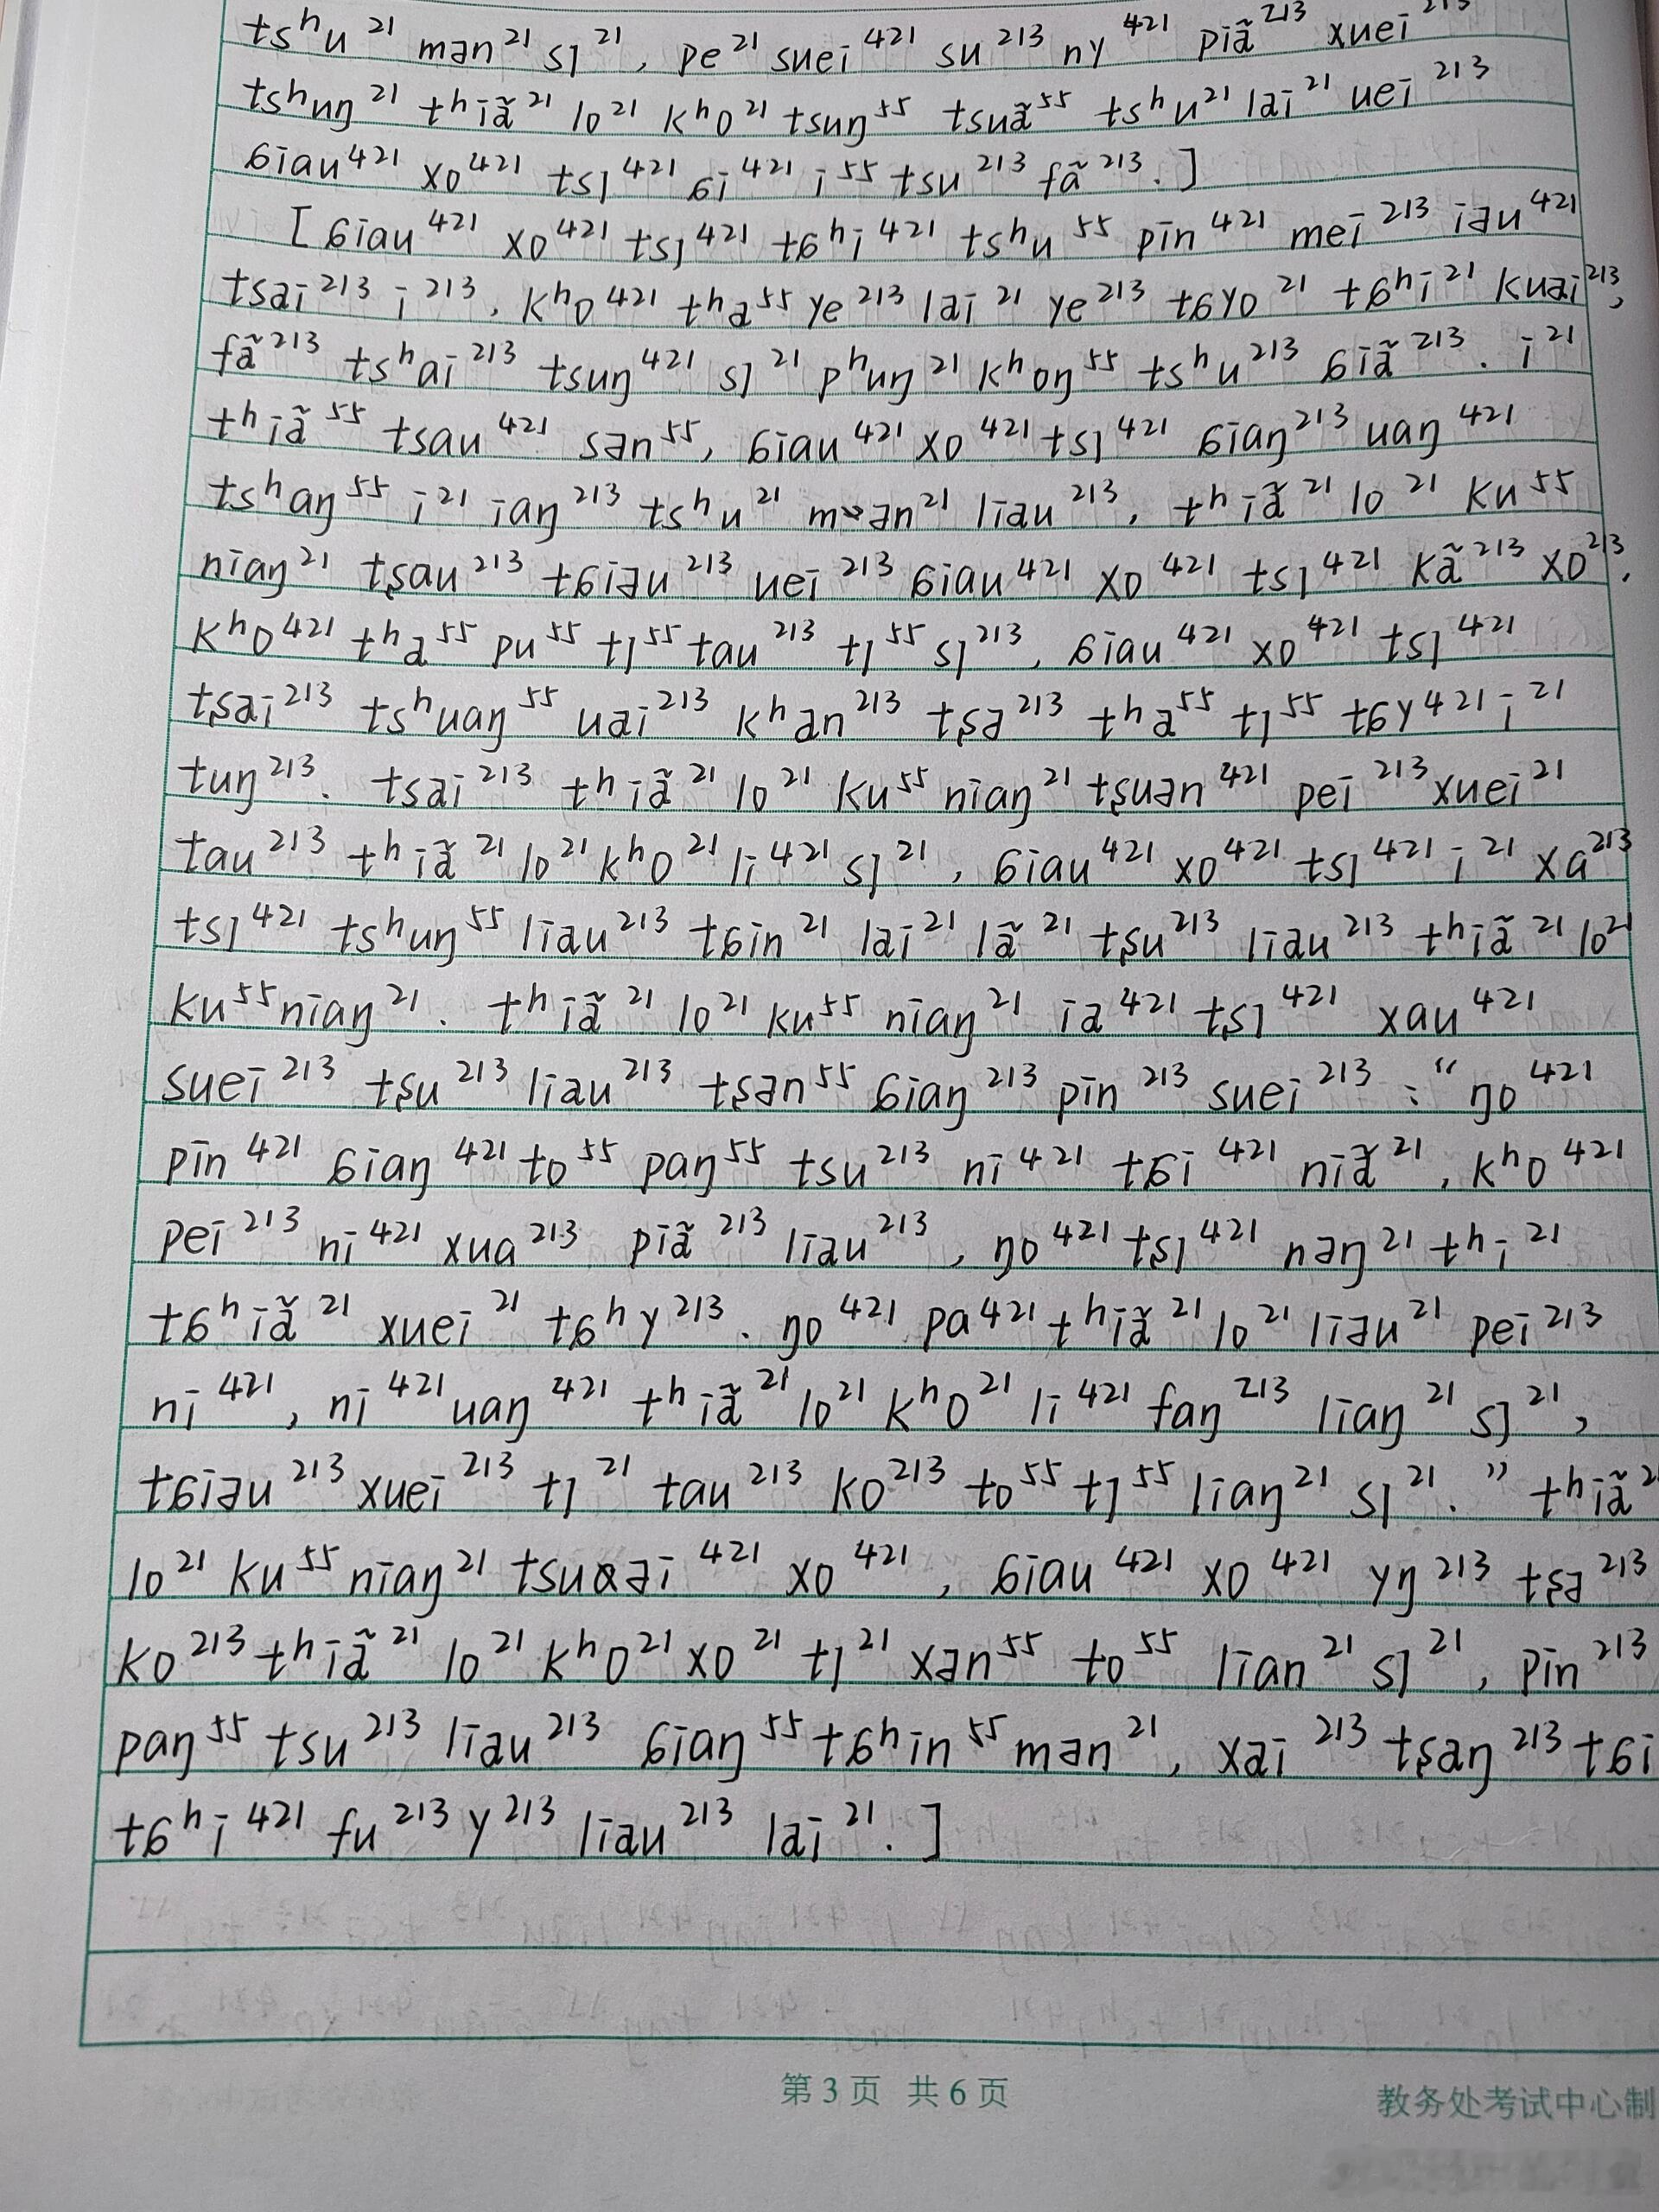 tsʰu²¹ mən²¹ sɿ²¹, pe²¹ suei⁴²¹ su²¹³ ny⁴²¹ piæ̃²¹³ xuei²¹³
tsʰuŋ²¹ tʰiæ̃²¹ lo²¹ kʰo²¹ tsuŋ⁵⁵ tsuæ̃⁵⁵ tsʰu²¹ lai²¹ uei²¹³
ɕiau⁴²¹ xo⁴²¹ tsɿ⁴²¹ ɕi⁴²¹ i⁵⁵ tsu²¹³ fæ̃²¹³.]
[ɕiau⁴²¹ xo⁴²¹ tsɿ⁴²¹ tɕʰi⁴²¹ tsʰu⁵⁵ pin⁴²¹ mei²¹³ iəu⁴²¹
tsai²¹³ i²¹³, kʰo⁴²¹ tʰa⁵⁵ ye²¹³ lai²¹ ye²¹³ tɕyo²¹ tɕʰi²¹ kuai²¹³,
fæ̃²¹³ tsʰai²¹³ tsuŋ⁴²¹ sɿ²¹ pʰuŋ²¹ kʰoŋ⁵⁵ tsʰu²¹³ ɕiæ̃²¹³. i²¹
tʰiæ̃⁵⁵ tsau⁴²¹ sən⁵⁵, ɕiau⁴²¹ xo⁴²¹ tsɿ⁴²¹ ɕiaŋ²¹³ uaŋ⁴²¹
tsʰaŋ⁵⁵ i²¹ iaŋ²¹³ tsʰu²¹ mən²¹ liau²¹³, tʰiæ̃²¹ lo²¹ ku⁵⁵
niaŋ²¹ tʂau²¹³ tɕiəu²¹³ uei²¹³ ɕiau⁴²¹ xo⁴²¹ tsɿ⁴²¹ kæ̃²¹³ xo²¹³,
kʰo⁴²¹ tʰa⁵⁵ pu⁵⁵ tɿ⁵⁵ tau²¹³ tɿ⁵⁵ sɿ²¹³, ɕiau⁴²¹ xo⁴²¹ tsɿ⁴²¹
tʂai²¹³ tsʰuaŋ⁵⁵ uai²¹³ kʰən²¹³ tʂə²¹³ tʰa⁵⁵ tɿ⁵⁵ tɕy⁴²¹ i²¹
tuŋ²¹³. tsai²¹³ tʰiæ̃²¹ lo²¹ ku⁵⁵ niaŋ²¹ tʂuən⁴²¹ pei²¹³ xuei²¹
tau²¹³ tʰiæ̃²¹ lo²¹ kʰo²¹ li⁴²¹ sɿ²¹, ɕiau⁴²¹ xo⁴²¹ tsɿ⁴²¹ i²¹ xa²¹³
tsɿ⁴²¹ tsʰuŋ⁵⁵ liau²¹³ tɕin²¹ lai²¹ læ̃²¹ tʂu²¹³ liau²¹³ tʰiæ̃²¹ lo²¹
ku⁵⁵ niaŋ²¹. tʰiæ̃²¹ lo²¹ ku⁵⁵ niaŋ²¹ ia⁴²¹ tʂɿ⁴²¹ xau⁴²¹
suei²¹³ tʂu²¹³ liau²¹³ tʂən⁵⁵ ɕiaŋ²¹³ pin²¹³ suei²¹³ : “ŋo⁴²¹
pin⁴²¹ ɕiaŋ⁴²¹ to⁵⁵ paŋ⁵⁵ tsu²¹³ ni⁴²¹ tɕi⁴²¹ niæ̃²¹, kʰo⁴²¹
pei²¹³ ni⁴²¹ xua²¹³ piæ̃²¹³ liau²¹³, ŋo⁴²¹ tʂɿ⁴²¹ nəŋ²¹ tʰi²¹
tɕʰiæ̃²¹ xuei²¹ tɕʰy²¹³. ŋo⁴²¹ pa⁴²¹ tʰiæ̃²¹ lo²¹ liəu²¹ pei²¹³
ni⁴²¹, ni⁴²¹ uaŋ⁴²¹ tʰiæ̃²¹ lo²¹ kʰo²¹ li⁴²¹ faŋ²¹³ liaŋ²¹ sɿ²¹,
tɕiəu²¹³ xuei²¹³ tɿ²¹ tau²¹³ ko²¹³ to⁵⁵ tɿ⁵⁵ liaŋ²¹ sɿ²¹.” tʰiæ̃²
lo²¹ ku⁵⁵ niaŋ²¹ tsuəi⁴²¹ xo⁴²¹, ɕiau⁴²¹ xo⁴²¹ yŋ²¹³ tʂə²¹³
ko²¹³ tʰiæ̃²¹ lo²¹ kʰo²¹ xo²¹ tɿ²¹ xən⁵⁵ to⁵⁵ lian²¹ sɿ²¹, pin²¹³
paŋ⁵⁵ tsu²¹³ liau²¹³ ɕiaŋ⁵⁵ tɕʰin⁵⁵ mən²¹, xai²¹³ tʂaŋ²¹³ tɕi
tɕʰi⁴²¹ fu²¹³ y²¹³ liau²¹³ lai²¹.]
第 3 页 共 6 页
教务处考试中心制